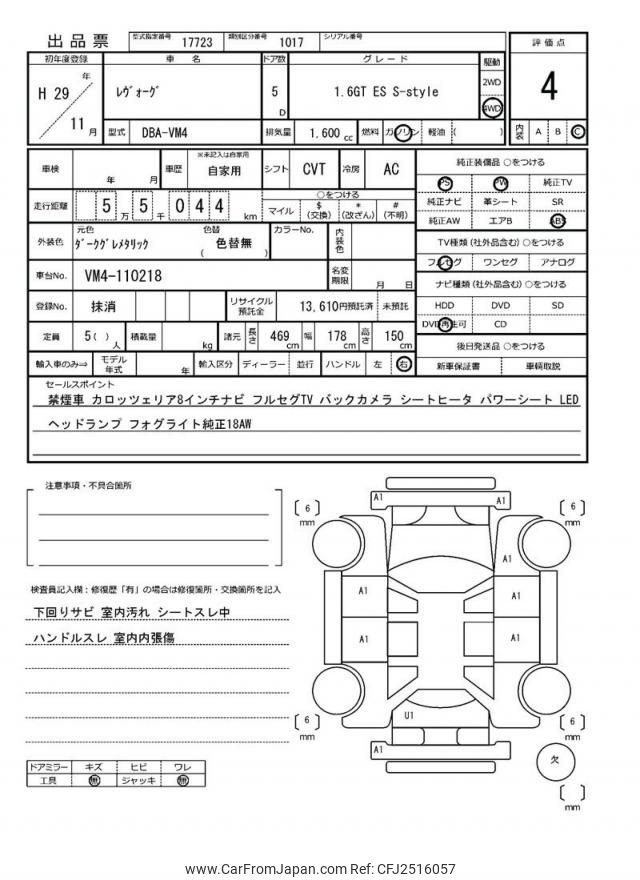 出品票 型式指定番号 17723 類別区分番号 1017 シリアル番号
初年度登録 車名 ドア数 グレード 駆動 評価点
H 29年 11月 ﾚｳﾞｫｰｸﾞ 5 D 1.6GT ES S-style 2WD 4WD 4
型式 DBA-VM4 排気量 1,600 cc 燃料 ガソリン 軽油 ( ) 内装 A B C
車検 年 月 車歴 ※未記入は自家用 自家用 シフト CVT 冷房 AC 純正装備品 ○をつける
PS PW 純正TV
走行距離 5 5 0 4 4 万 千 km ○をつける
マイル $(交換) *(改ざん) #(不明)
純正ナビ 革シート SR
純正AW エアB ABS
外装色 元色 ﾀﾞｰｸｸﾞﾚﾒﾀﾘｯｸ 色替 ( 色替無 ) カラーNo. 内装色
TV種類(社外品含む) ○をつける
フルセグ ワンセグ アナログ
車台No. VM4-110218 名変期限 月 日
ナビ種類(社外品含む) ○をつける
登録No. 抹消 リサイクル預託金 13,610円預託済 未預託
HDD DVD SD
DVD再生可 CD
定員 5( )人 積載量 kg 諸元 長さ 469 cm 幅 178 cm 高さ 150 cm
後日発送品 ○をつける
輸入車のみ⇒ モデル年式 年 輸入区分 ディーラー 並行 ハンドル 左 右 新車保証書 車輌取説
セールスポイント
禁煙車 カロッツェリア8インチナビ フルセグTV バックカメラ シートヒータ パワーシート LED
ヘッドランプ フォグライト純正18AW
注意事項・不具合箇所
検査員記入欄：修復歴「有」の場合は修復箇所・交換箇所を記入
下回りサビ 室内汚れ シートスレ中
ハンドルスレ 室内内張傷
ドアミラー キズ ヒビ ワレ
工具 無 ジャッキ 無
A1 A1
6 mm 6 mm
A1
A1 A1
A1 A1
U1
6 mm 6 mm
A1
欠
mm
www.CarFromJapan.com Ref: CFJ2516057